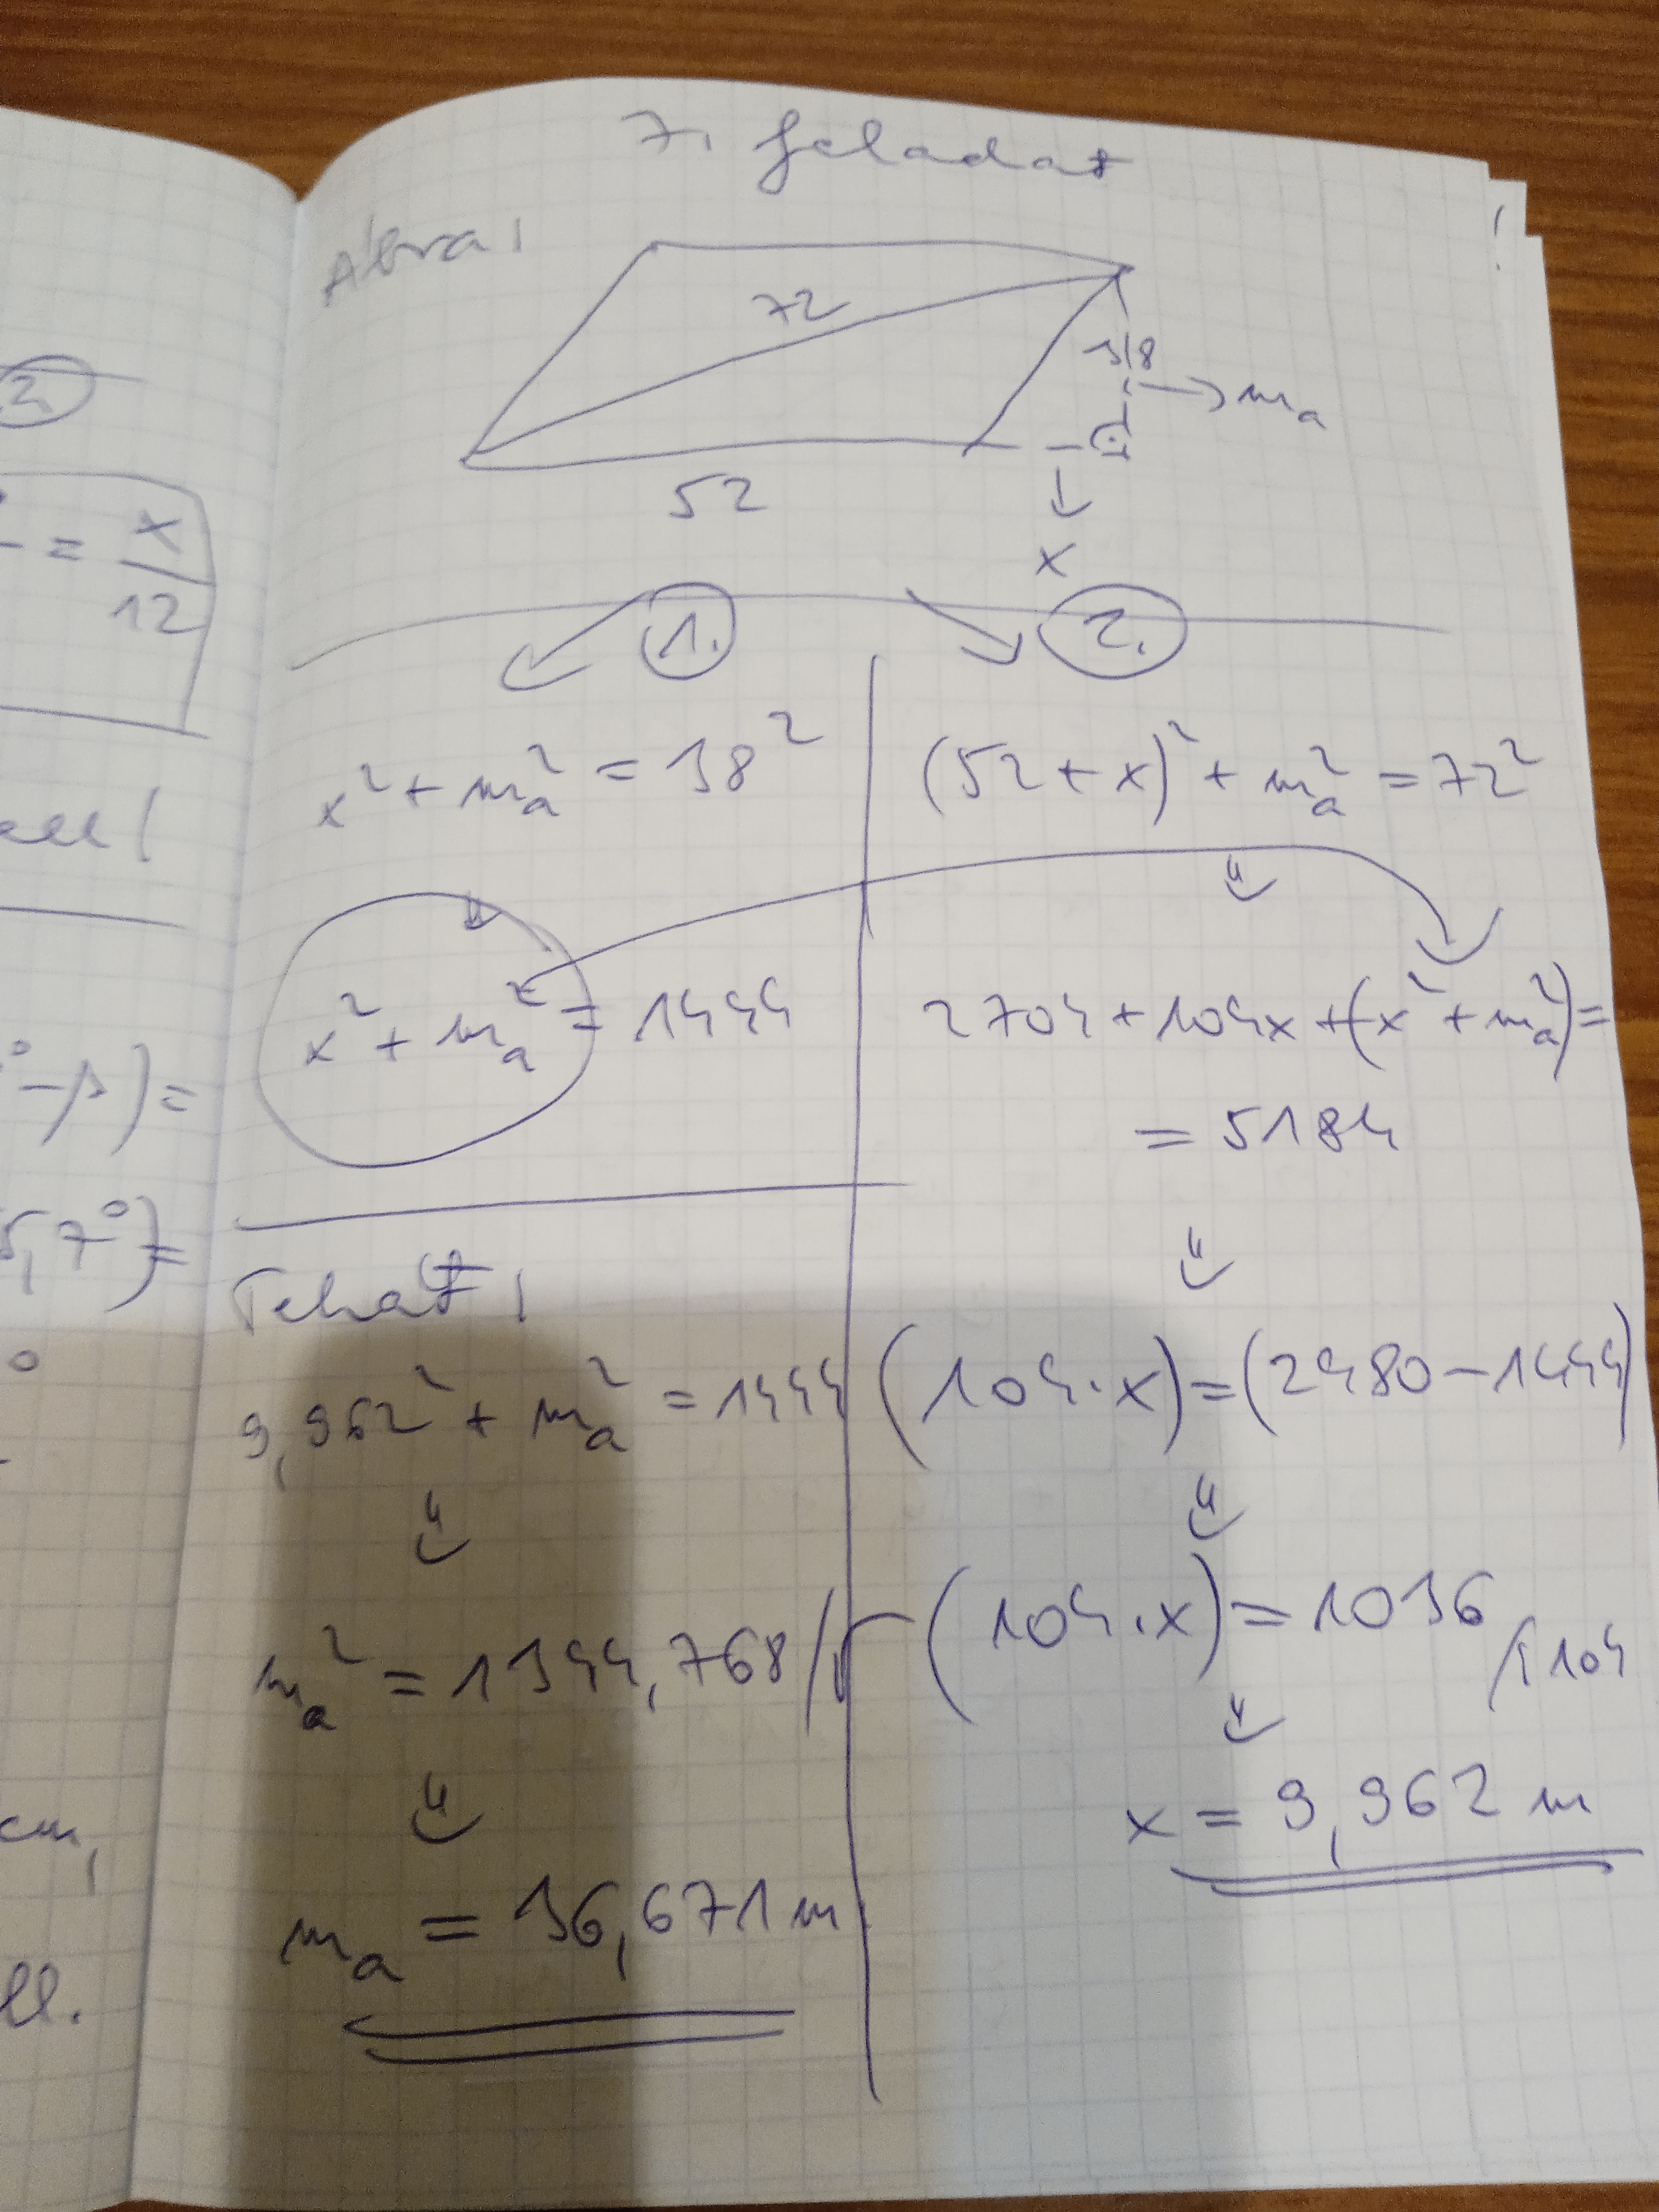 7. feladat
Ábra:
72
38
ma
52
x
1.
2.
x² + ma² = 38²
(52 + x)² + ma² = 72²
x² + ma² = 1444
2704 + 104x + (x² + ma²) =
= 5184
(104 · x) = (2480 − 1444)
(104 · x) = 1036 /: 104
x = 9,962 m
Tehát:
9,962² + ma² = 1444
ma² = 1344,768 /√
ma = 36,671 m
2.
= x
12
° − β) =
5,7°) =
°
cm,
ll.